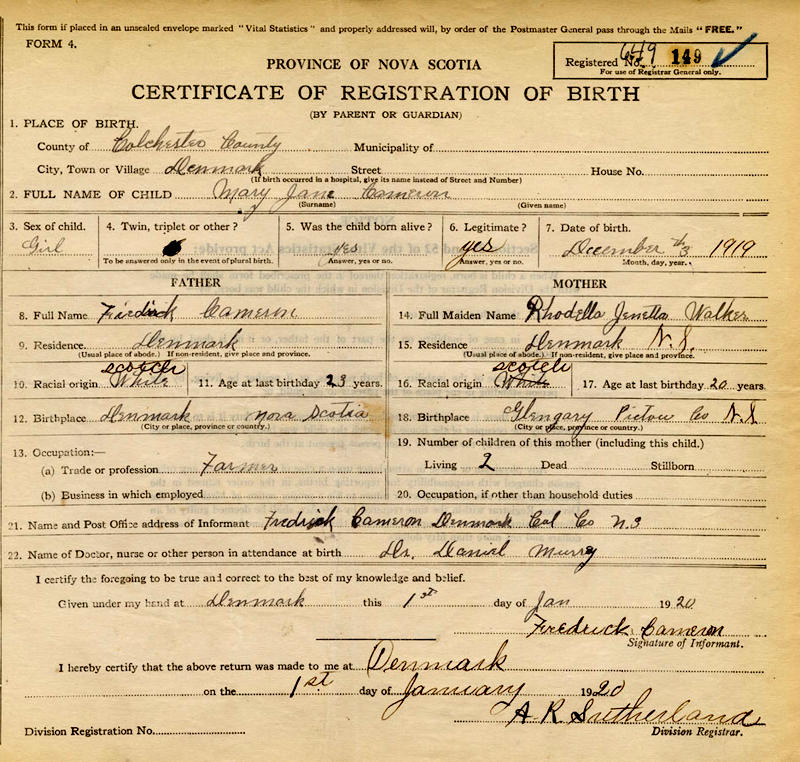 This form if placed in an unsealed envelope marked "Vital Statistics" and properly addressed will, by order of the Postmaster General pass through the Mails "FREE."
FORM 4.
Registered No. 649 149
For use of Registrar General only.
PROVINCE OF NOVA SCOTIA
CERTIFICATE OF REGISTRATION OF BIRTH
(BY PARENT OR GUARDIAN)
1. PLACE OF BIRTH.
County of Colchester County Municipality of
City, Town or Village Denmark Street House No.
(If birth occurred in a hospital, give its name instead of Street and Number)
2. FULL NAME OF CHILD Mary Jane Cameron
(Surname) (Given name)
3. Sex of child. 4. Twin, triplet or other? 5. Was the child born alive? 6. Legitimate? 7. Date of birth.
Girl yes yes December 3 th 1919
To be answered only in the event of plural birth. Answer, yes or no. Answer, yes or no. Month, day, year.
FATHER MOTHER
8. Full Name Fredrick Cameron 14. Full Maiden Name Rhodella Jenetta Walker
9. Residence Denmark 15. Residence Denmark N.S.
(Usual place of abode.) If non-resident, give place and province. (Usual place of abode.) If non-resident, give place and province.
scotch scotch
10. Racial origin White 11. Age at last birthday 23 years. 16. Racial origin White 17. Age at last birthday 20 years.
12. Birthplace Denmark Nova Scotia 18. Birthplace Glengary Pictou Co N.S
(City or place, province or country.) (City or place, province or country.)
13. Occupation:— 19. Number of children of this mother (including this child.)
(a) Trade or profession Farmer Living 2 Dead Stillborn
(b) Business in which employed 20. Occupation, if other than household duties
21. Name and Post Office address of Informant Fredrick Cameron Denmark Col Co N.S
22. Name of Doctor, nurse or other person in attendance at birth Dr. Daniel Murry
I certify the foregoing to be true and correct to the best of my knowledge and belief.
Given under my hand at Denmark this 1st day of Jan 1920
Fredrick Cameron
Signature of Informant.
I hereby certify that the above return was made to me at Denmark
on the 1st. day of January 1920
A R Sutherland
Division Registration No. Division Registrar.